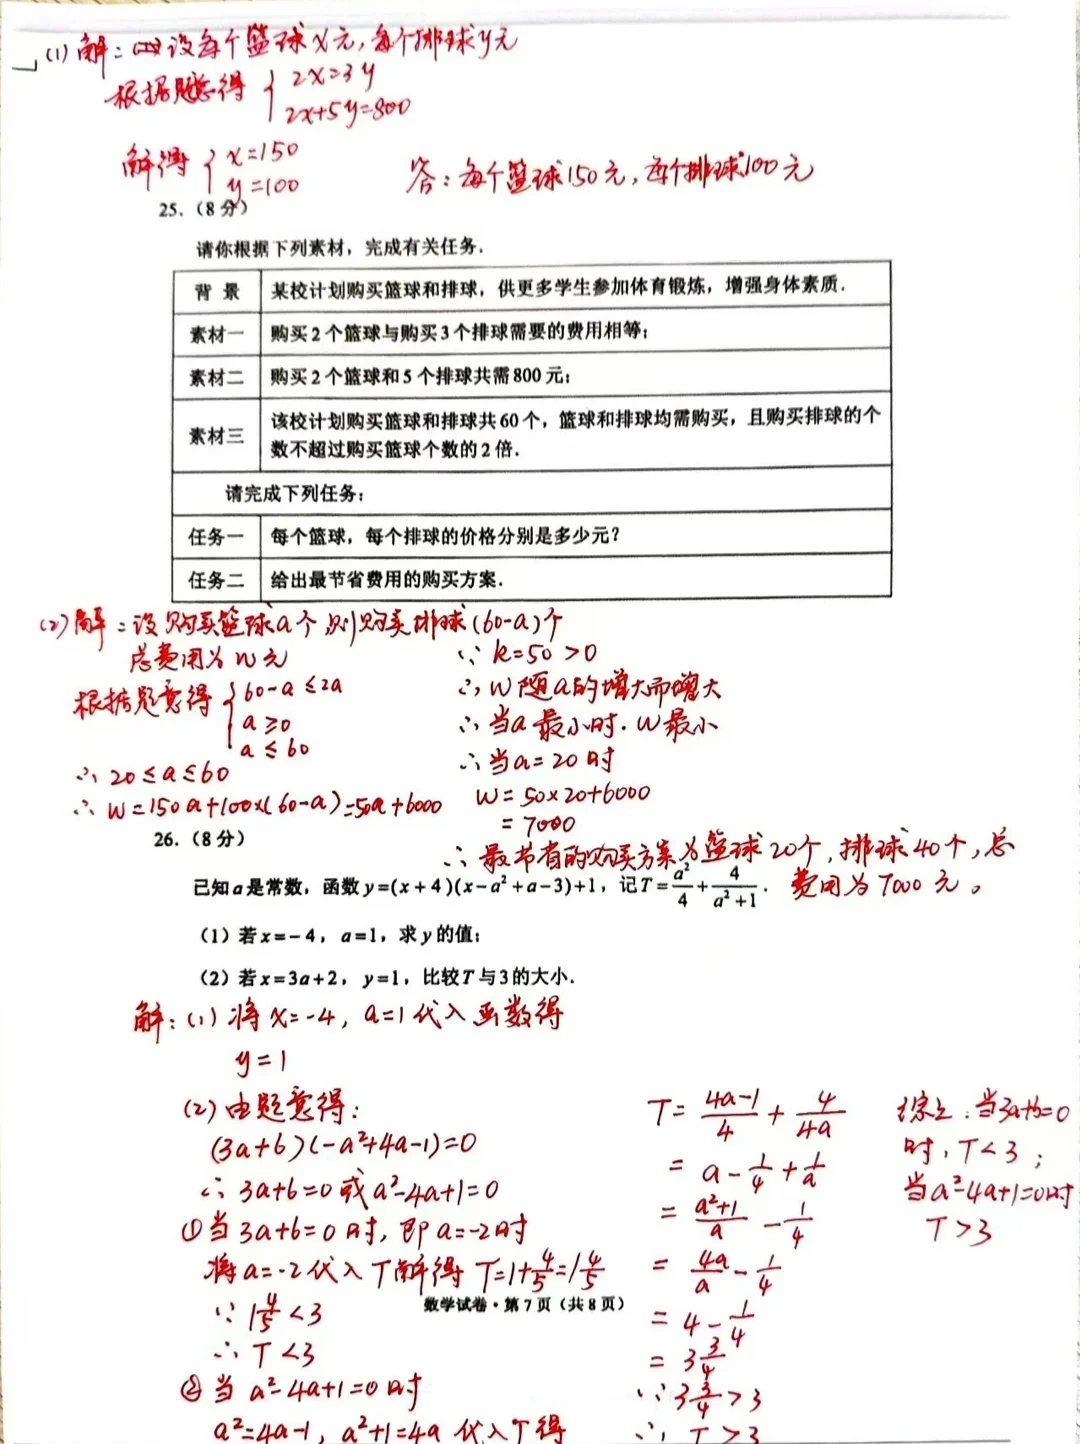 (1) 解：设每个篮球x元，每个排球y元
根据题意得 { 2x=3y
2x+5y=800
解得 { x=150
y=100
答：每个篮球150元，每个排球100元
25.（8分）
请你根据下列素材，完成有关任务.
背 景 某校计划购买篮球和排球，供更多学生参加体育锻炼，增强身体素质.
素材一 购买2个篮球与购买3个排球需要的费用相等;
素材二 购买2个篮球和5个排球共需800元;
素材三 该校计划购买篮球和排球共60个，篮球和排球均需购买，且购买排球的个
数不超过购买篮球个数的2倍.
请完成下列任务:
任务一 每个篮球，每个排球的价格分别是多少元?
任务二 给出最节省费用的购买方案.
(2) 解：设购买篮球a个 则购买排球(60-a)个
总费用为W元
根据题意得 { 60-a≤2a
a≥0
a≤60
∴ 20≤a≤60
∴ W=150a+100×(60-a)=50a+6000
∵ k=50>0
∴ W随a的增大而增大
∴ 当a最小时.W最小
∴ 当a=20时
W=50×20+6000
=7000
∴ 最节省的购买方案为篮球20个，排球40个，总
费用为7000元。
26.（8分）
已知a是常数，函数y=(x+4)(x-a²+a-3)+1，记T=a²/4+4/(a²+1).
（1）若x=-4，a=1，求y的值;
（2）若x=3a+2，y=1，比较T与3的大小.
解：(1) 将x=-4，a=1代入函数得
y=1
(2) 由题意得：
(3a+6)(-a²+4a-1)=0
∴ 3a+6=0或a²-4a+1=0
①当3a+6=0时，即a=-2时
将a=-2代入T解得T=1+4/5=1 4/5
∵ 1 4/5<3
∴ T<3
②当a²-4a+1=0时
a²=4a-1，a²+1=4a代入T得
T=(4a-1)/4+4/4a
=a-1/4+1/a
=(a²+1)/a-1/4
=4a/a-1/4
=4-1/4
=3 3/4
∵ 3 3/4>3
∴ T>3
综上：当3a+6=0
时，T<3；
当a²-4a+1=0时
T>3
数学试卷·第7页（共8页）